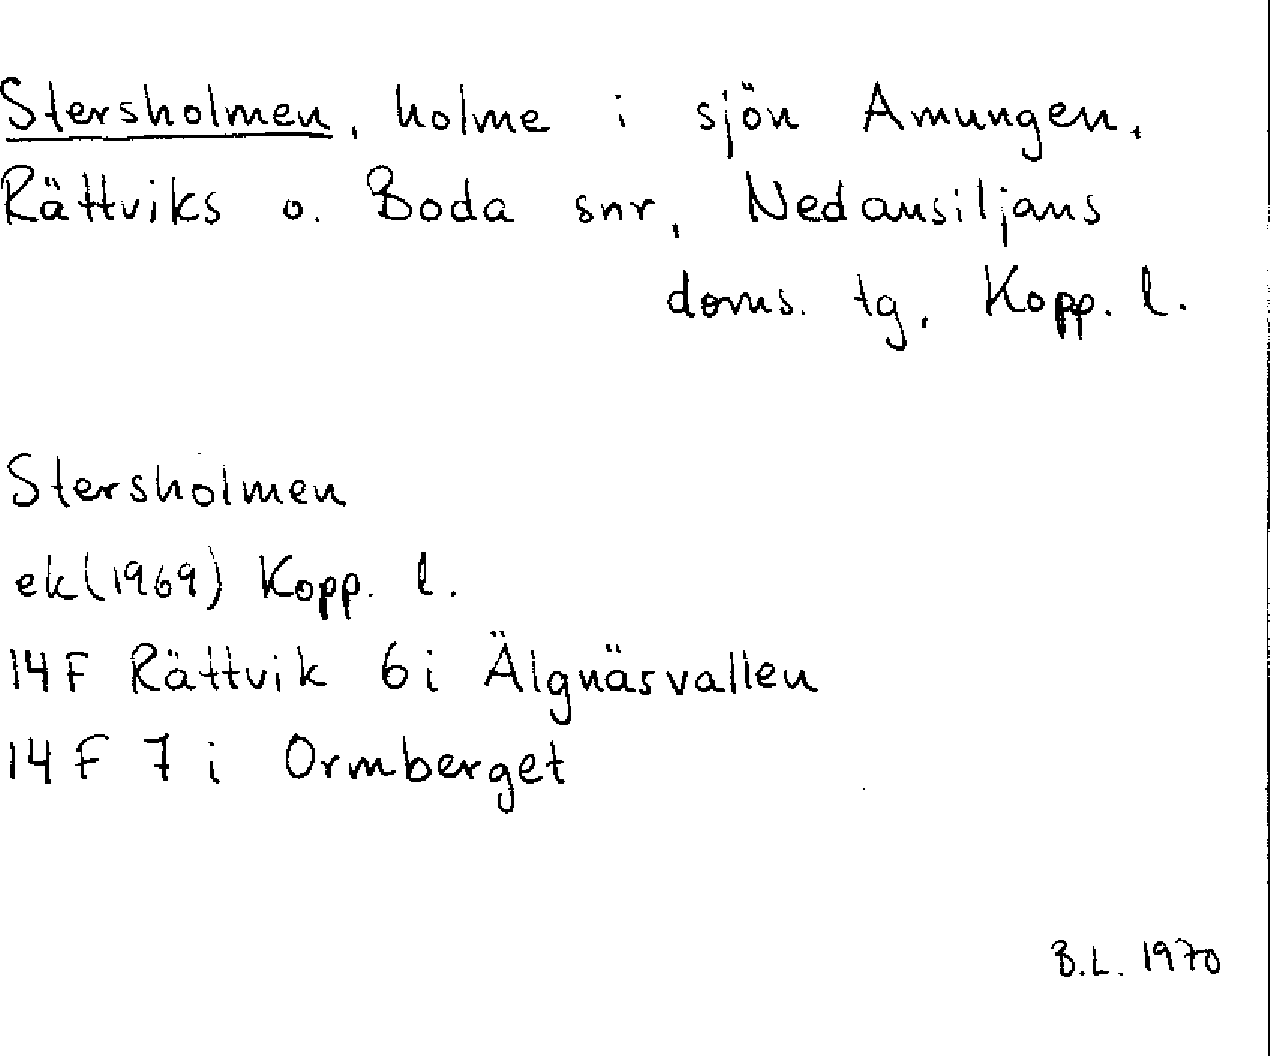 Stersholmen, holme i sjön Amungen,
Rättviks o. Boda snr, Nedansiljans
doms. tg, Kopp. l.
Stersholmen
ek (1969) Kopp. l.
14 F Rättvik 6 i Älgnäsvallen
14 F 7 i Ormberget
B.L. 1970